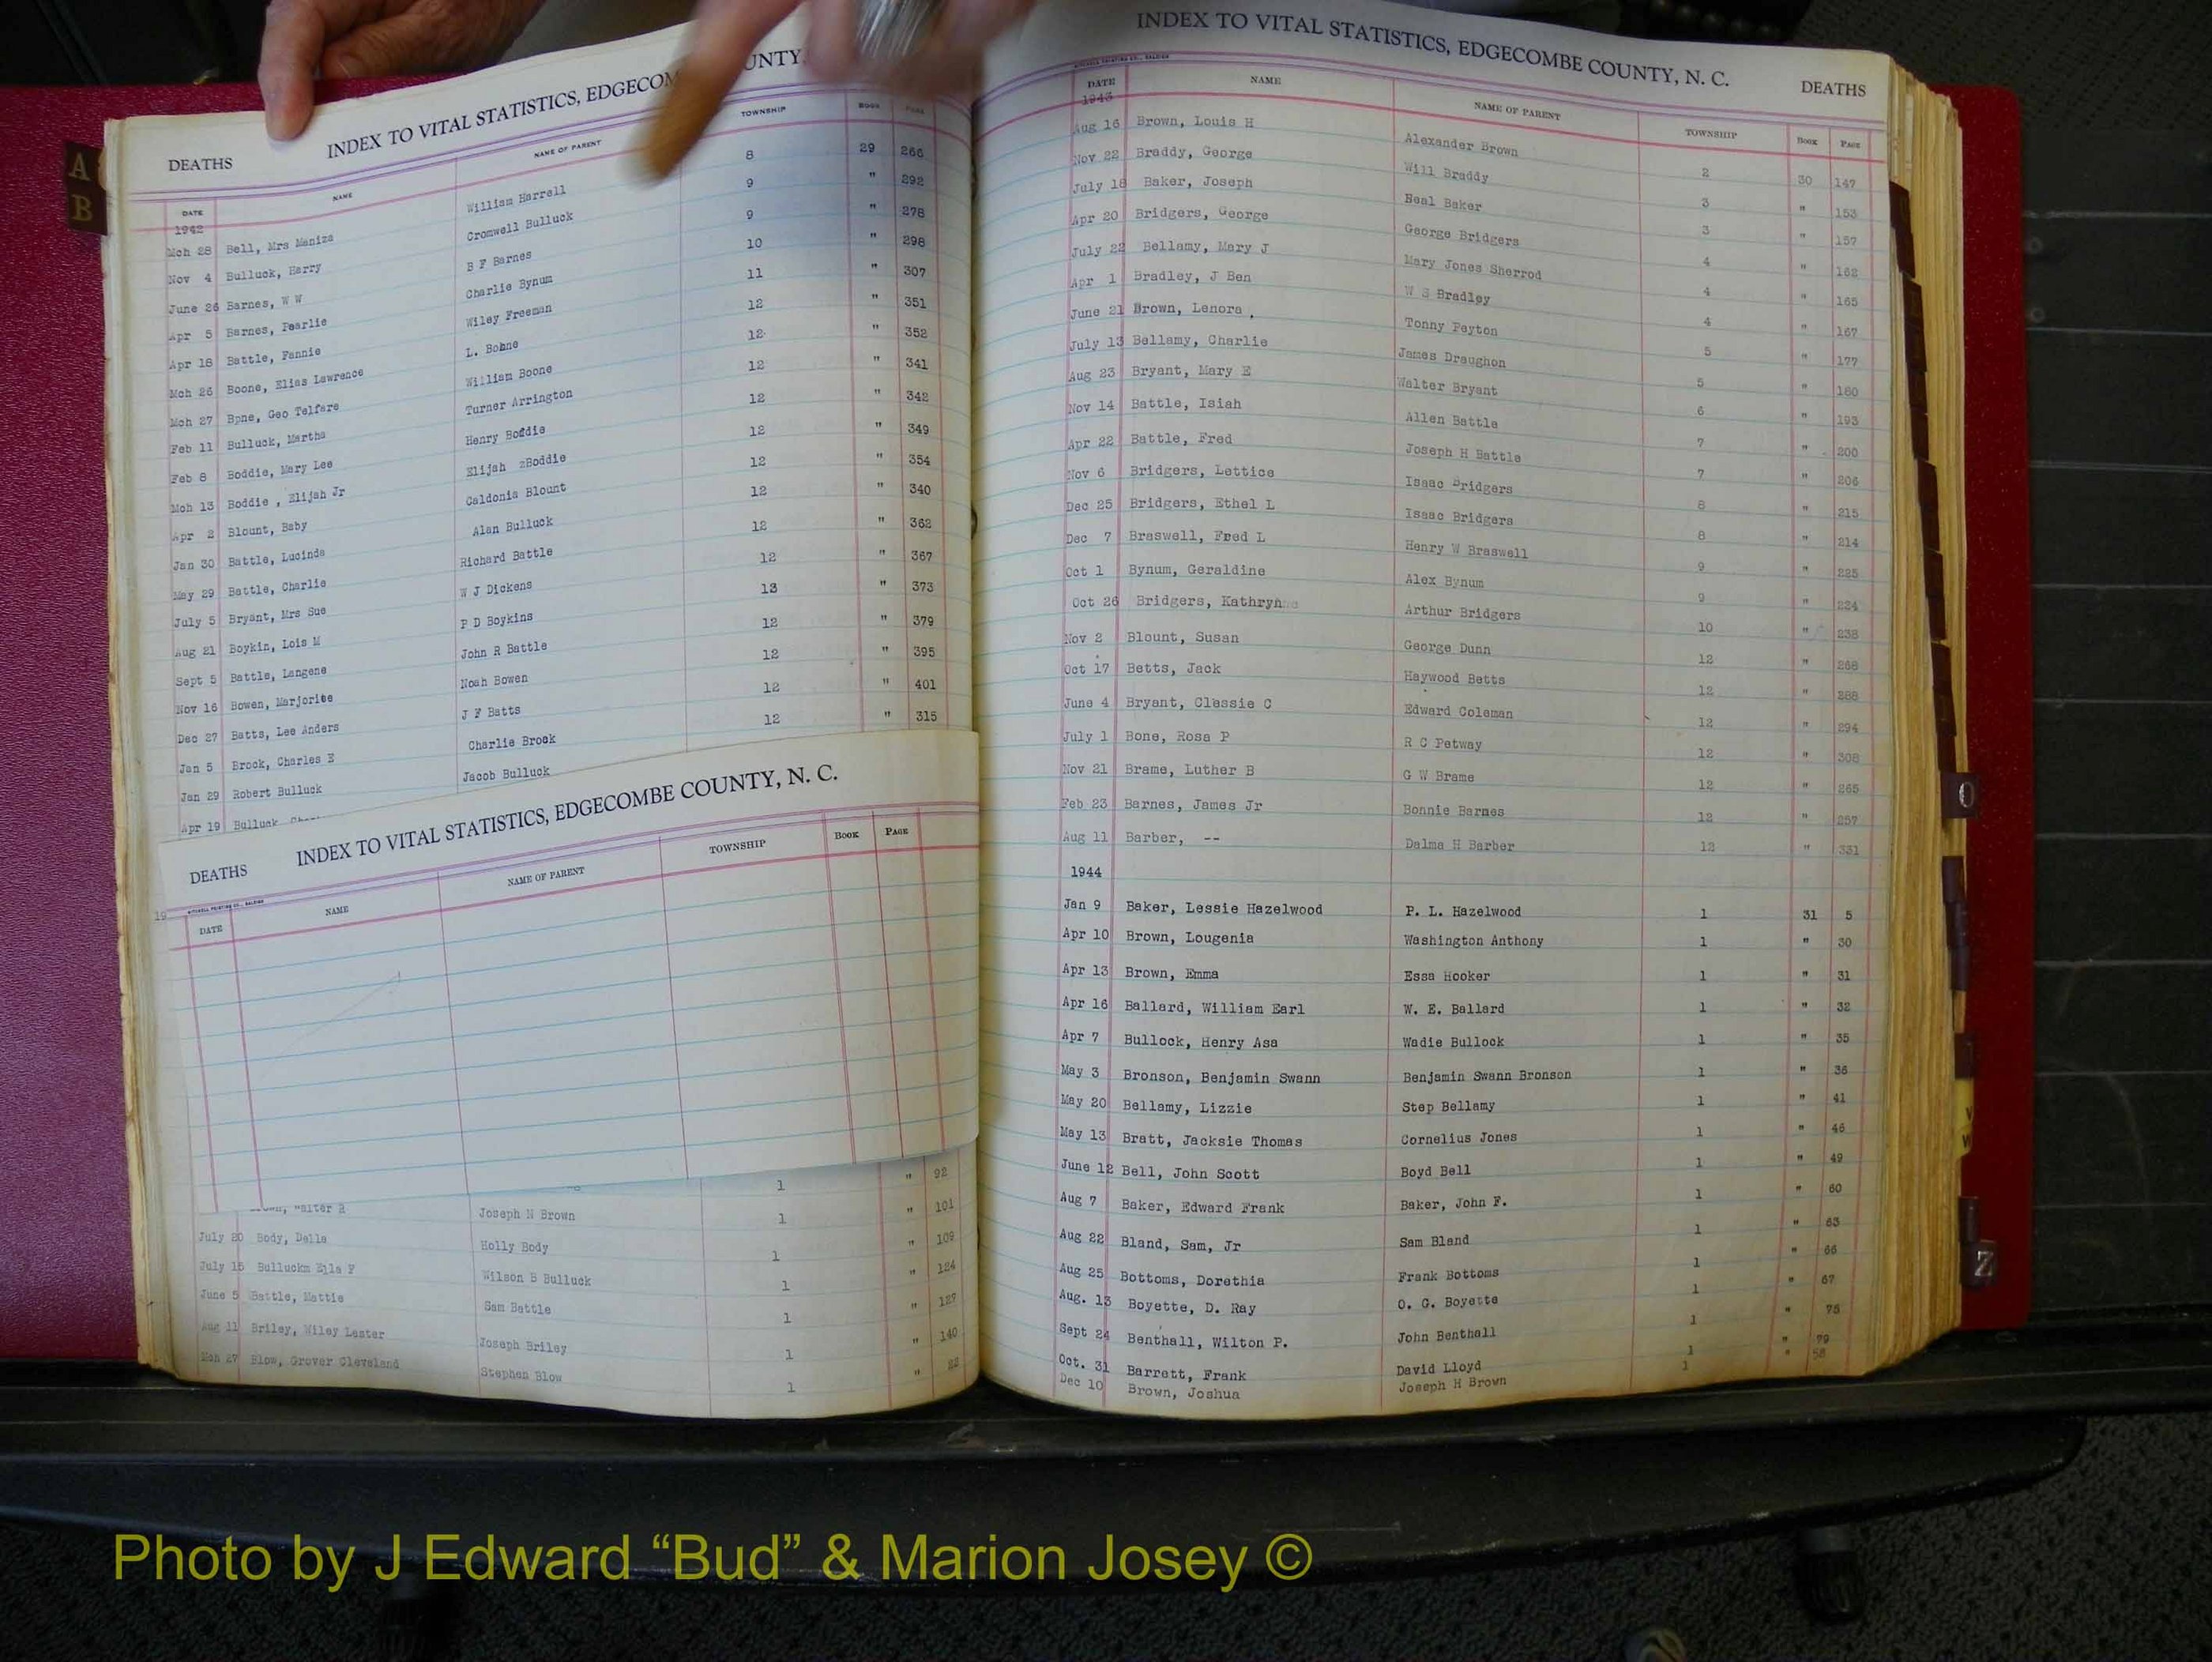 A
B
INDEX TO VITAL STATISTICS, EDGECOM UNTY,
DEATHS
DATE NAME NAME OF PARENT TOWNSHIP BOOK PAGE
1942
Mch 28 Bell, Mrs Maniza William Harrell 8 29 266
Nov 4 Bulluck, Harry Cromwell Bulluck 9 " 292
June 26 Barnes, W W B F Barnes 9 " 278
Apr 5 Barnes, Pearlie Charlie Bynum 10 " 298
Apr 18 Battle, Fannie Wiley Freeman 11 " 307
Mch 26 Boone, Elias Lawrence L. Bohne 12 " 351
Mch 27 Bpne, Geo Telfare William Boone 12 " 352
Feb 11 Bulluck, Martha Turner Arrington 12 " 341
Feb 8 Boddie, Mary Lee Henry Boddie 12 " 342
Mch 13 Boddie , Elijah Jr Elijah zBoddie 12 " 349
Apr 2 Blount, Baby Caldonia Blount 12 " 354
Jan 30 Battle, Lucinda Alan Bulluck 12 " 340
May 29 Battle, Charlie Richard Battle 12 " 362
July 5 Bryant, Mrs Sue W J Dickens 12 " 367
Aug 21 Boykin, Lois M P D Boykins 13 " 373
Sept 5 Battle, Langene John R Battle 12 " 379
Nov 16 Bowen, Marjoriee Noah Bowen 12 " 395
Dec 27 Batts, Lee Anders J F Batts 12 " 401
Jan 5 Brock, Charles E Charlie Brock 12 " 315
Jan 29 Robert Bulluck Jacob Bulluck
Apr 19 Bulluck
INDEX TO VITAL STATISTICS, EDGECOMBE COUNTY, N. C.
DEATHS
MITCHELL PRINTING CO., RALEIGH
19
DATE NAME NAME OF PARENT TOWNSHIP BOOK PAGE
1 " 92
Walter R Joseph N Brown 1 " 101
July 20 Body, Della Holly Body 1 " 109
July 15 Bulluckm Ella F Wilson B Bulluck 1 " 124
June 5 Battle, Mattie Sam Battle 1 " 127
Aug 11 Briley, Wiley Lester Joseph Briley 1 " 140
Mch 27 Blow, Grover Cleveland Stephen Blow 1 "
INDEX TO VITAL STATISTICS, EDGECOMBE COUNTY, N. C.
DEATHS
MITCHELL PRINTING CO., RALEIGH
DATE NAME NAME OF PARENT TOWNSHIP BOOK PAGE
1943
Aug 16 Brown, Louis H Alexander Brown 2 30 147
Nov 22 Braddy, George Will Braddy 3 " 153
July 18 Baker, Joseph Neal Baker 3 " 157
Apr 20 Bridgers, George George Bridgers 4 " 162
July 22 Bellamy, Mary J Mary Jones Sherrod 4 " 165
Apr 1 Bradley, J Ben W S Bradley 4 " 167
June 21 Brown, Lenora . Tonny Peyton 5 " 177
July 13 Bellamy, Charlie James Draughon 5 " 180
Aug 23 Bryant, Mary E Walter Bryant 6 " 193
Nov 14 Battle, Isiah Allen Battle 7 " 200
Apr 22 Battle, Fred Joseph H Battle 7 " 206
Nov 6 Bridgers, Lettice Isaac Bridgers 8 " 215
Dec 25 Bridgers, Ethel L Isaac Bridgers 8 " 214
Dec 7 Braswell, Fred L Henry W Braswell 9 " 225
Oct 1 Bynum, Geraldine Alex Bynum 9 " 224
Oct 26 Bridgers, Kathryn Arthur Bridgers 10 " 238
Nov 2 Blount, Susan George Dunn 12 " 268
Oct 17 Betts, Jack Haywood Betts 12 " 288
June 4 Bryant, Classie C Edward Coleman 12 " 294
July 1 Bone, Rosa P R C Petway 12 " 308
Nov 21 Brame, Luther B G W Brame 12 " 265
Feb 23 Barnes, James Jr Bonnie Barnes 12 " 257
Aug 11 Barber, -- Dalma H Barber 12 " 331
1944
Jan 9 Baker, Lessie Hazelwood P. L. Hazelwood 1 31 5
Apr 10 Brown, Lougenia Washington Anthony 1 " 30
Apr 13 Brown, Emma Essa Hooker 1 " 31
Apr 16 Ballard, William Earl W. E. Ballard 1 " 32
Apr 7 Bullock, Henry Asa Wadie Bullock 1 " 35
May 3 Bronson, Benjamin Swann Benjamin Swann Bronson 1 " 36
May 20 Bellamy, Lizzie Step Bellamy 1 " 41
May 13 Bratt, Jacksie Thomas Cornelius Jones 1 " 46
June 12 Bell, John Scott Boyd Bell 1 " 49
Aug 7 Baker, Edward Frank Baker, John F. 1 " 60
Aug 22 Bland, Sam, Jr Sam Bland 1 " 63
Aug 25 Bottoms, Dorethia Frank Bottoms 1 " 66
Aug. 13 Boyette, D. Ray O. G. Boyette 1 " 67
Sept 24 Benthall, Wilton P. John Benthall 1 " 75
Oct. 31 Barrett, Frank David Lloyd 1 " 79
Dec 10 Brown, Joshua Joseph H Brown 1 " 58
O
V
W
Z
Photo by J Edward “Bud” & Marion Josey ©